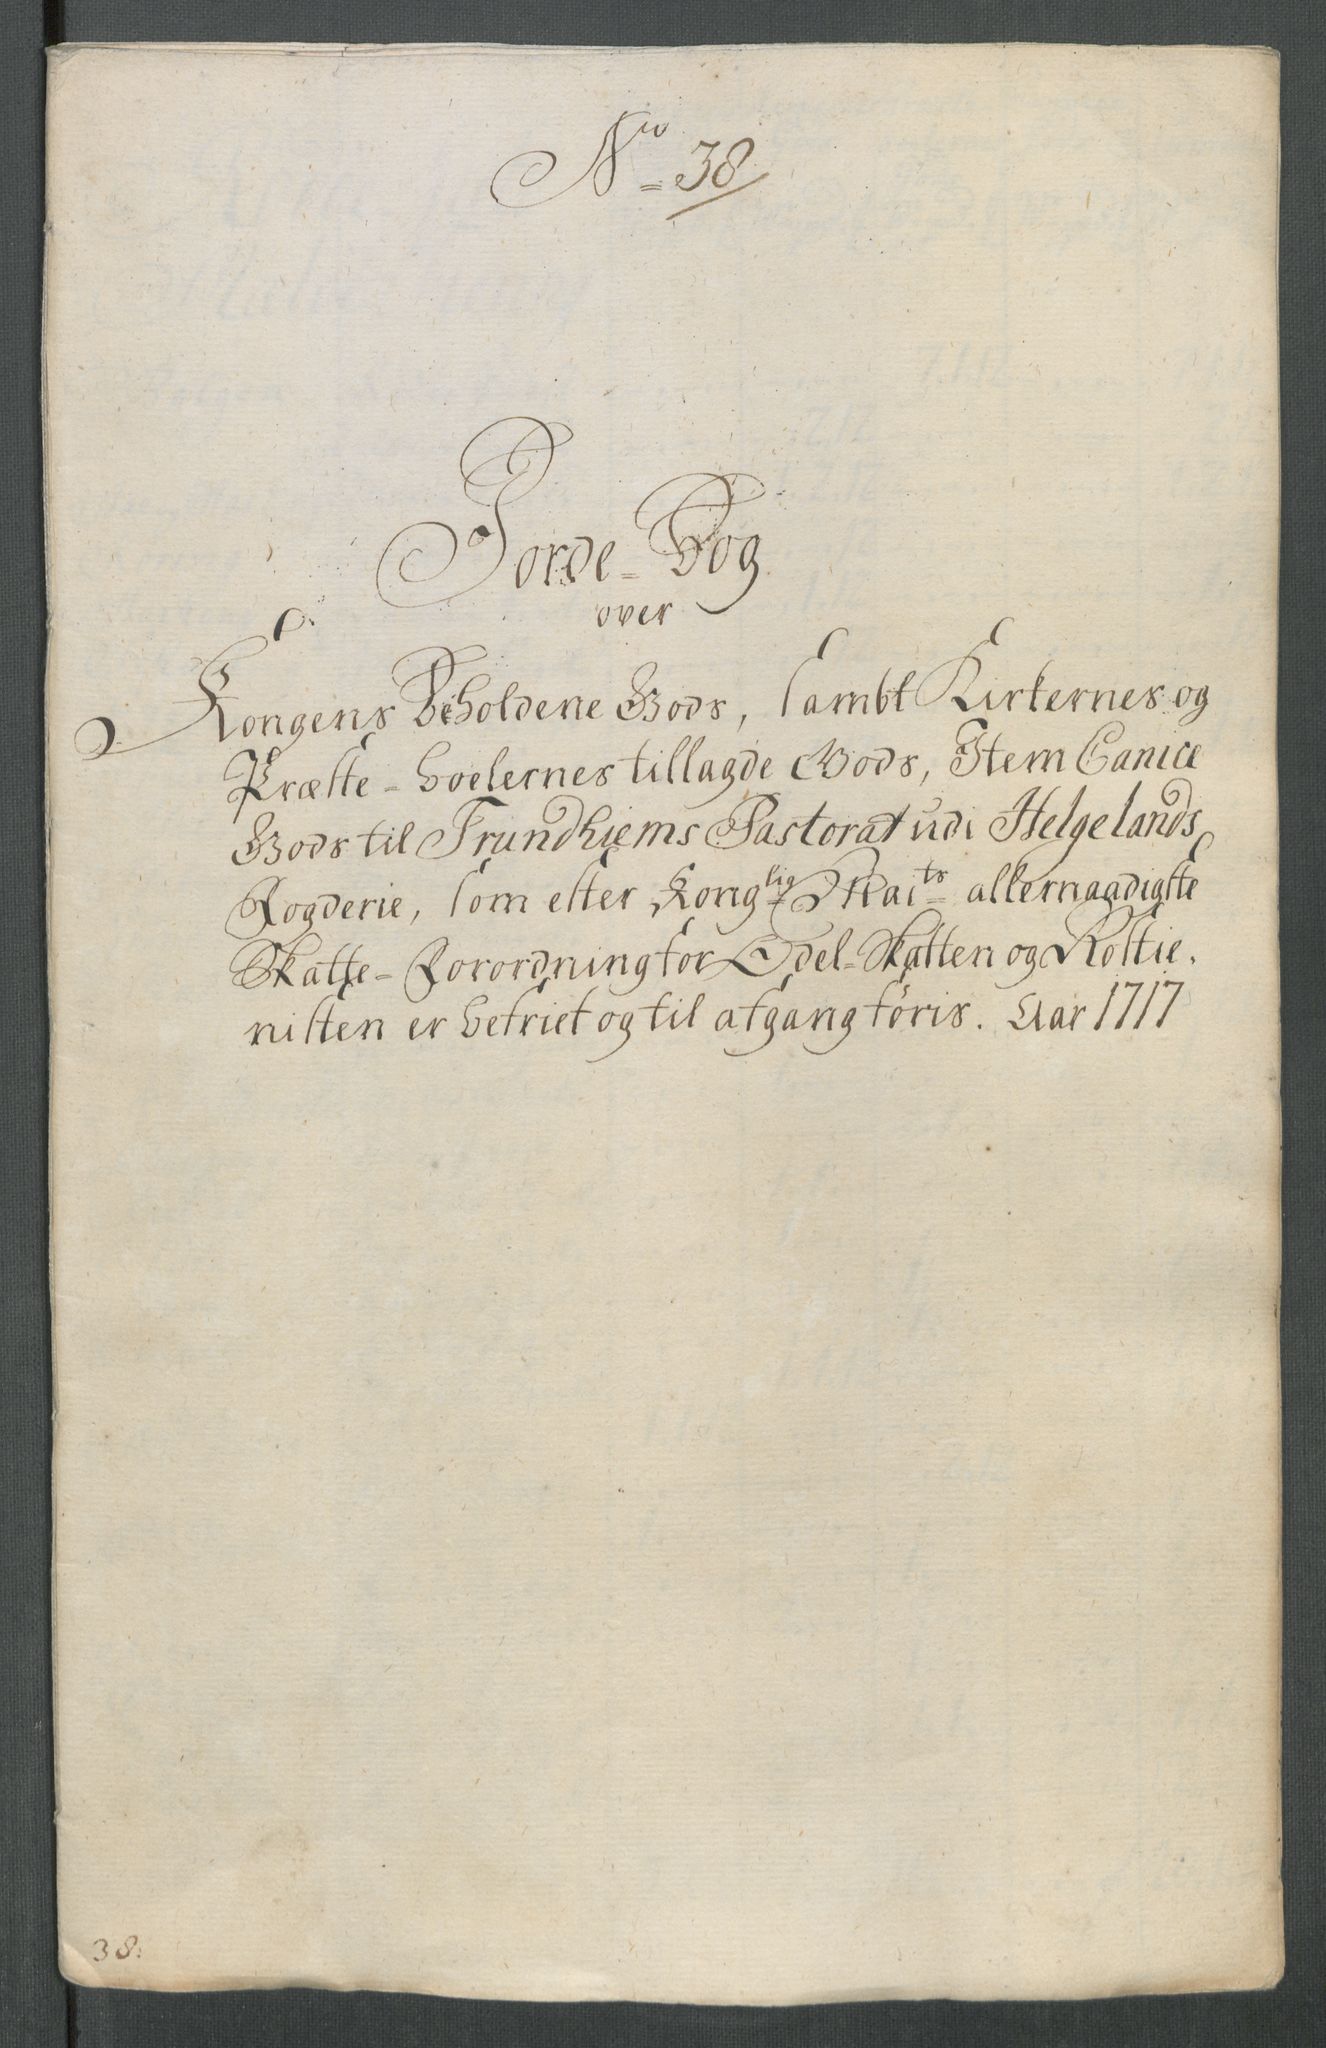 No = 38
Jorde=Bog
over
Kongens Beholdene Gods, sambt Kirkernes og
Præste=boelernes tillagde Gods, Item Canice
Gods til Trundhiems Pastorat udi Helgelands
Fogderie, som efter Konglig Maits allernaadigste
Skatte=Forordning for Odel=Skatten og Rostie=
nisten er befriet og til afgang føris. Aar 1717
38.